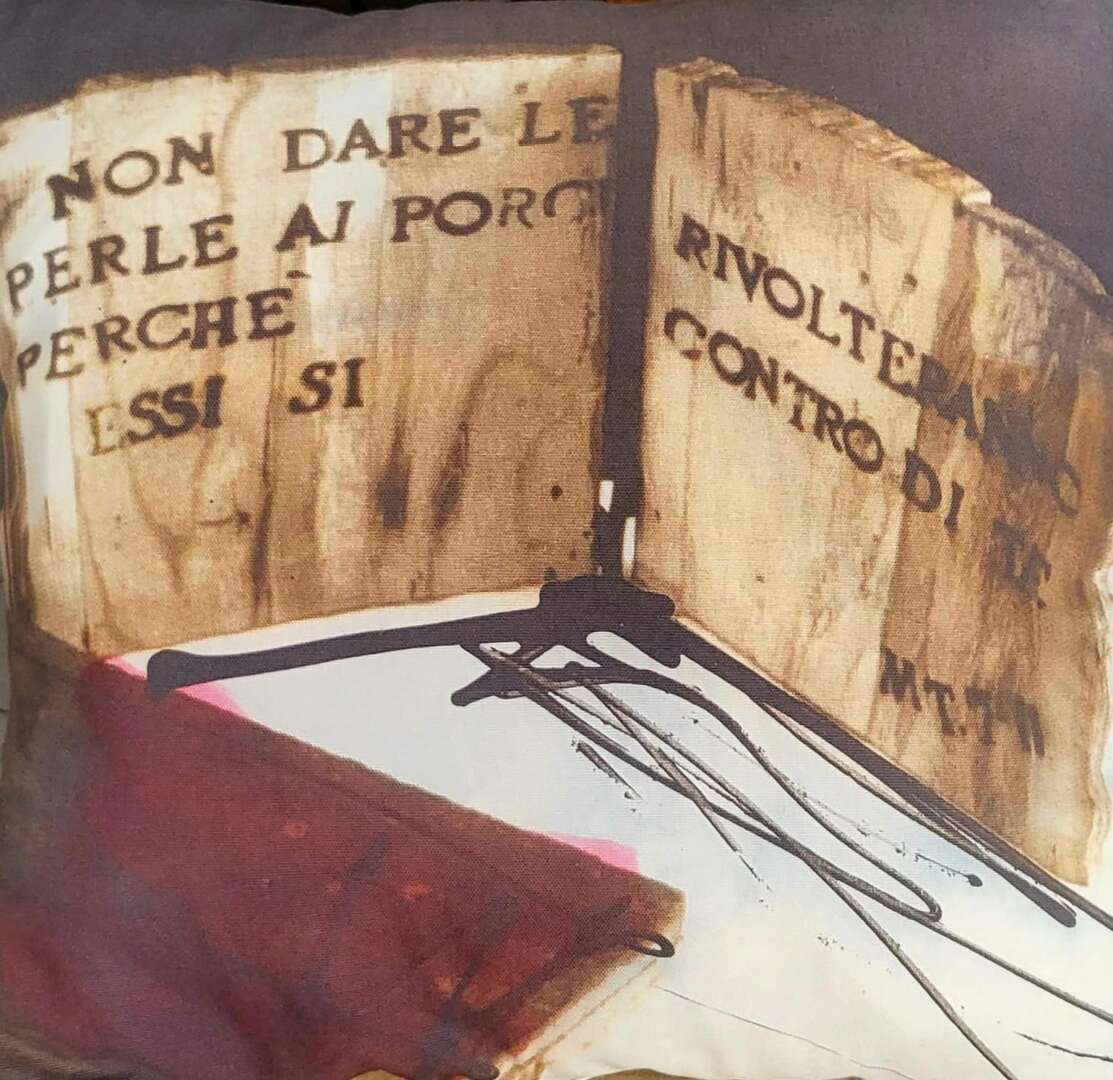 NON DARE LE
PERLE AI PORCI
PERCHÈ
ESSI SI
RIVOLTERANNO
CONTRO DI TE
MT.